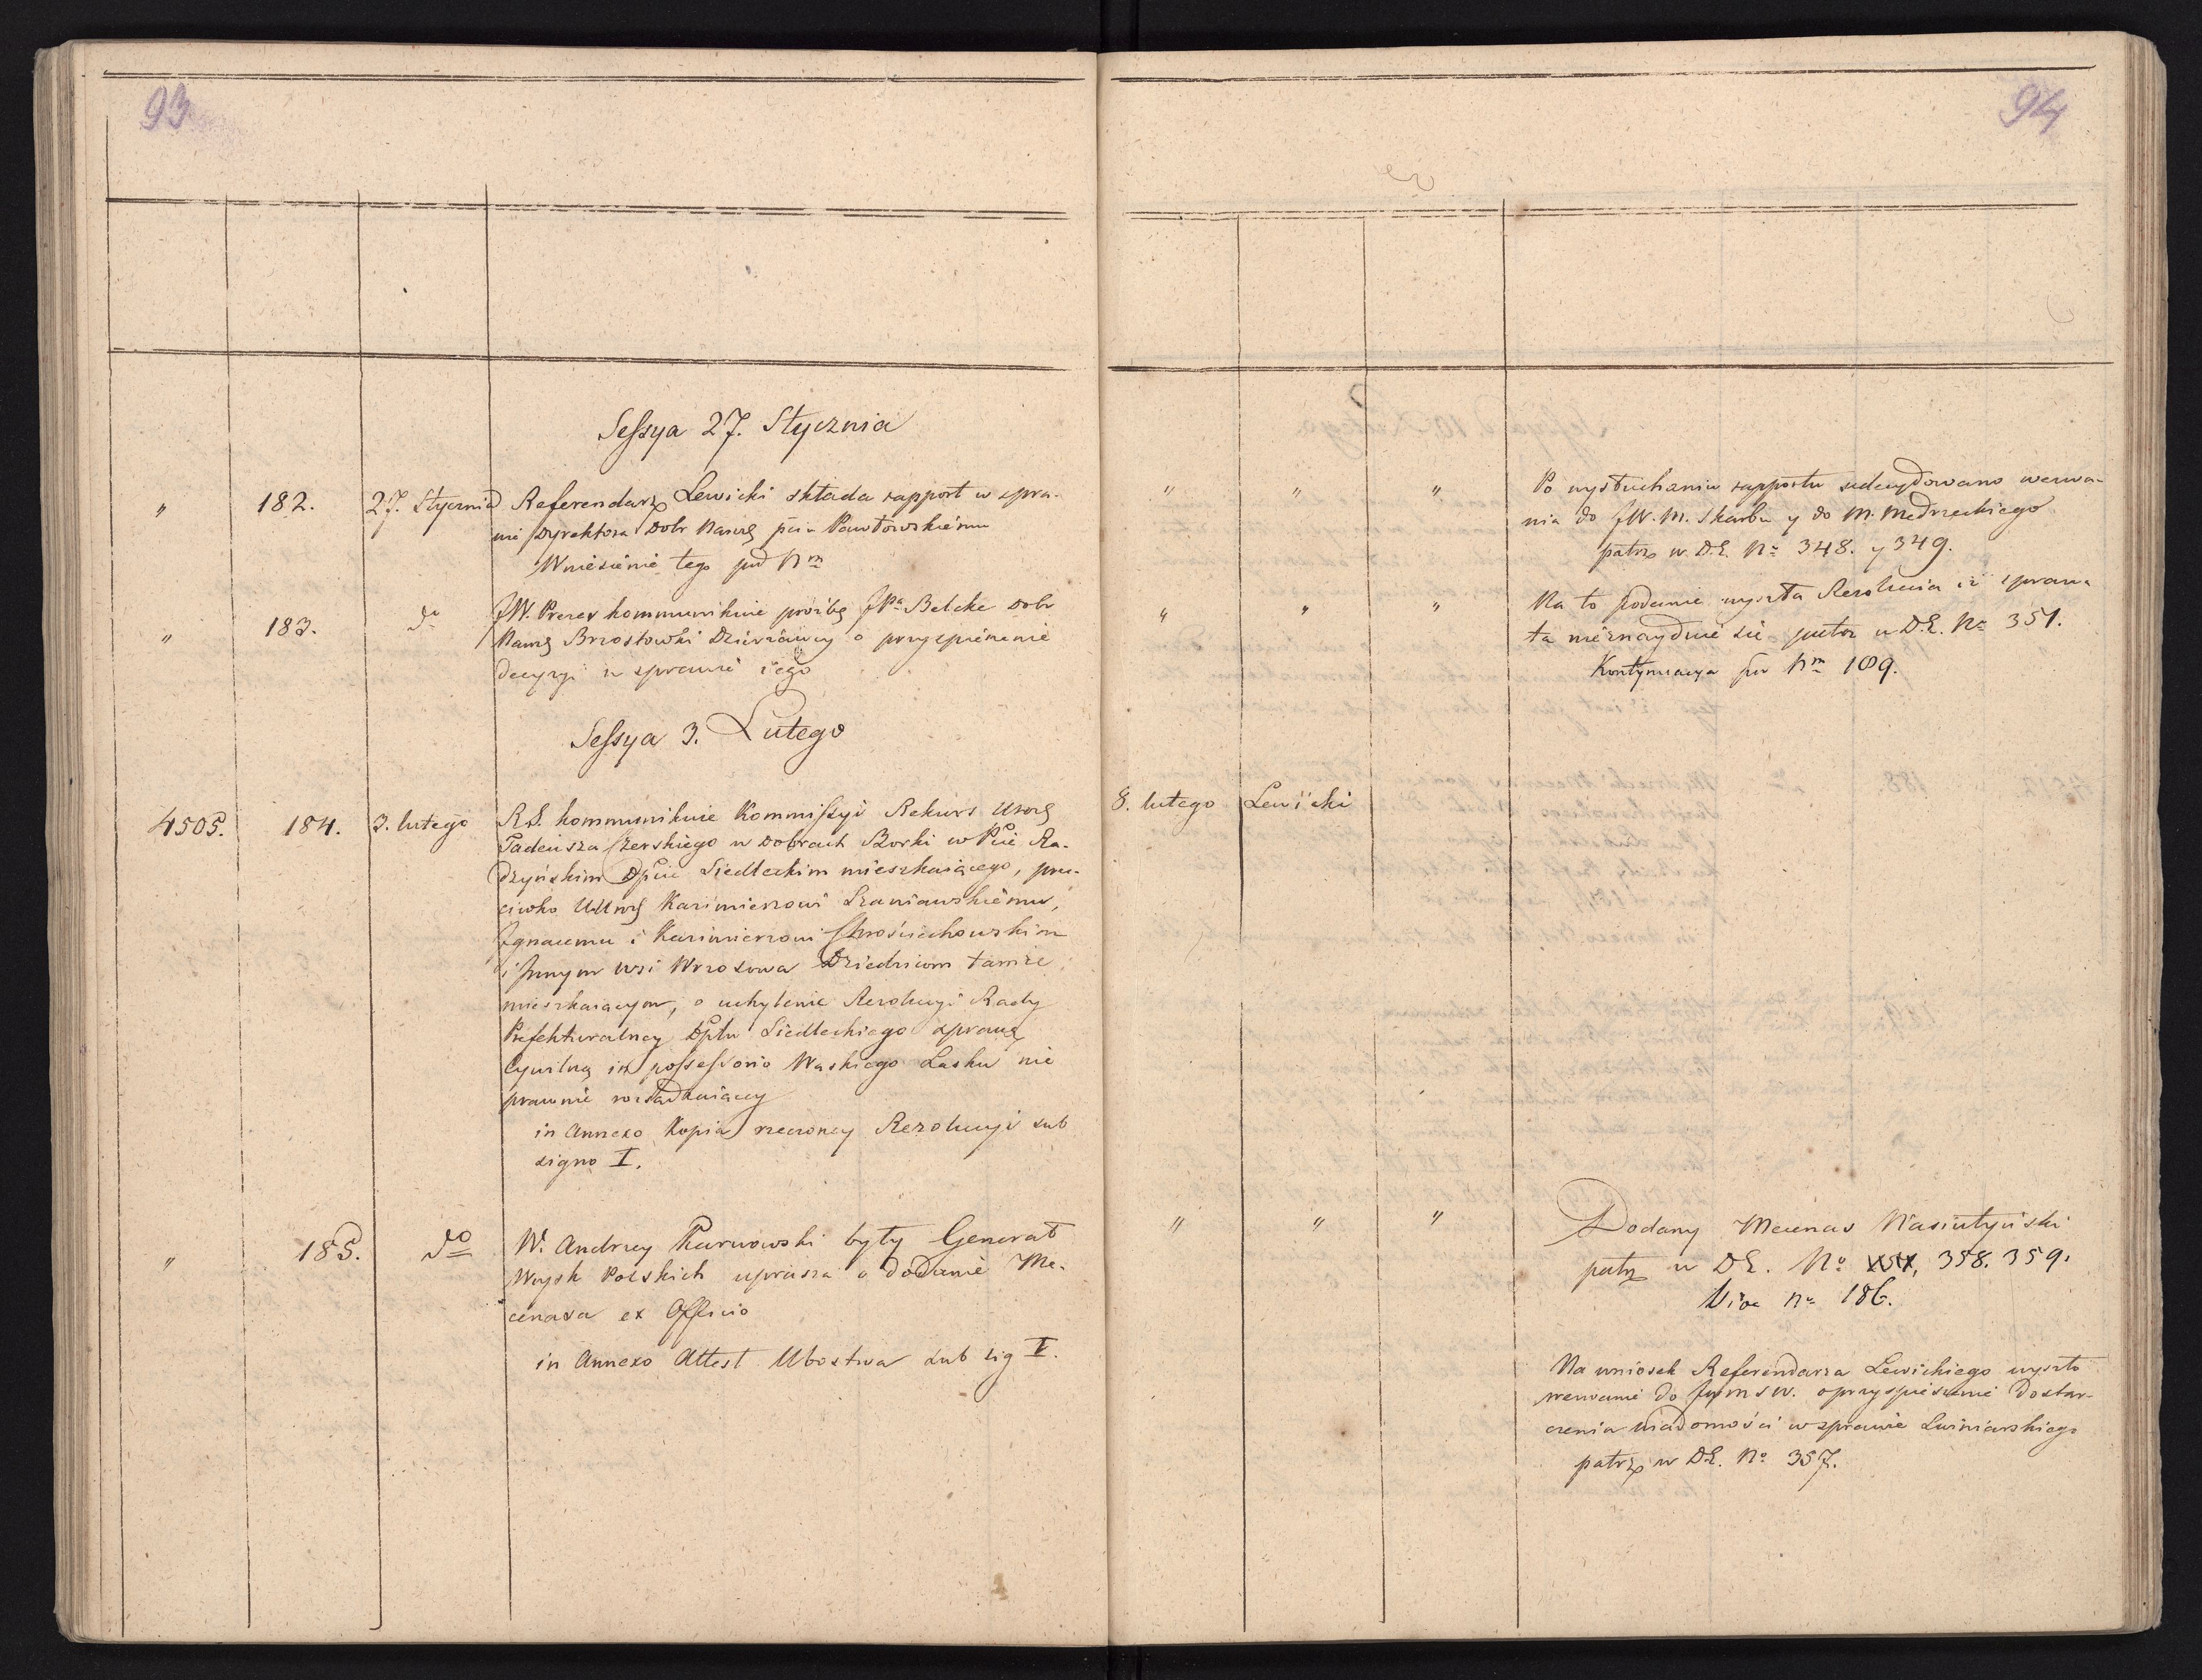 93
Sessya 27. Stycznia
" 182. 27. Stycznia Referendarz Lewicki składa rapport w spra-
wie Dyrektora Dobr Narod. Pawłowskiému
Wniesienie tego pod Nm
" 183. do JW. Prezes kommunikuie prośbę JPa Belcke Dobr
Narod. Brzostowki Dzierżawcy o przyspieszenie
decyzyi w sprawie iego
Sessya 3. Lutego
4505. 184. 3. lutego R.S. kommunikuie Kommissyi Rekurs Urod.
Tadeusza w Dobrach Borki w Pcie Ra-
dzyńskim Dpcie Siedleckim mieszkaiącego, prze-
ciwko Kazimierzowi Szaniawskiému,
Ignacemu i Kazimierzowi
i Innym wsi Wrzosowa Dziedzicom tamże
mieszkaiącym, o uchylenie Rezolucyi Rady
Prefekturalney Dptu Siedleckiego sprawę
Cywilną in possessorio Waskiego Lasku nie
prawnie rozsądzaiącey
in Annexo Kopia rzeczoney Rezolucyi sub
signo I.
" 185. do W. Andrzey Karwowski były Generał
Woysk Polskich uprasza o dodanie Me-
cenasa ex Officio
in Annexo Attest Ubostwa sub sig I.
94
" " " Po wysłuchaniu rapportu zadecydowano wezwa-
nia do JW. M. Skarbu y do M. Mędrzeckiego
patrz w D.E. No 348. y 349.
" " " Na to podanie wyszła Rezolucia iż sprawa
ta nieznayduie się patrz w D.E. No 351.
Kontynuacya pod Nm 189.
8. lutego Lewicki
" " " Dodany Mecenas Wasiutyński
patrz w D.E. No 358. 359.
Vide No 186.
Na wniosek Referendarza Lewickiego wyszło
wezwanie do JWMSW. o przyspieszenie dostar-
czenia wiadomości w sprawie Świniarskiego
patrz w D.E. No 357.